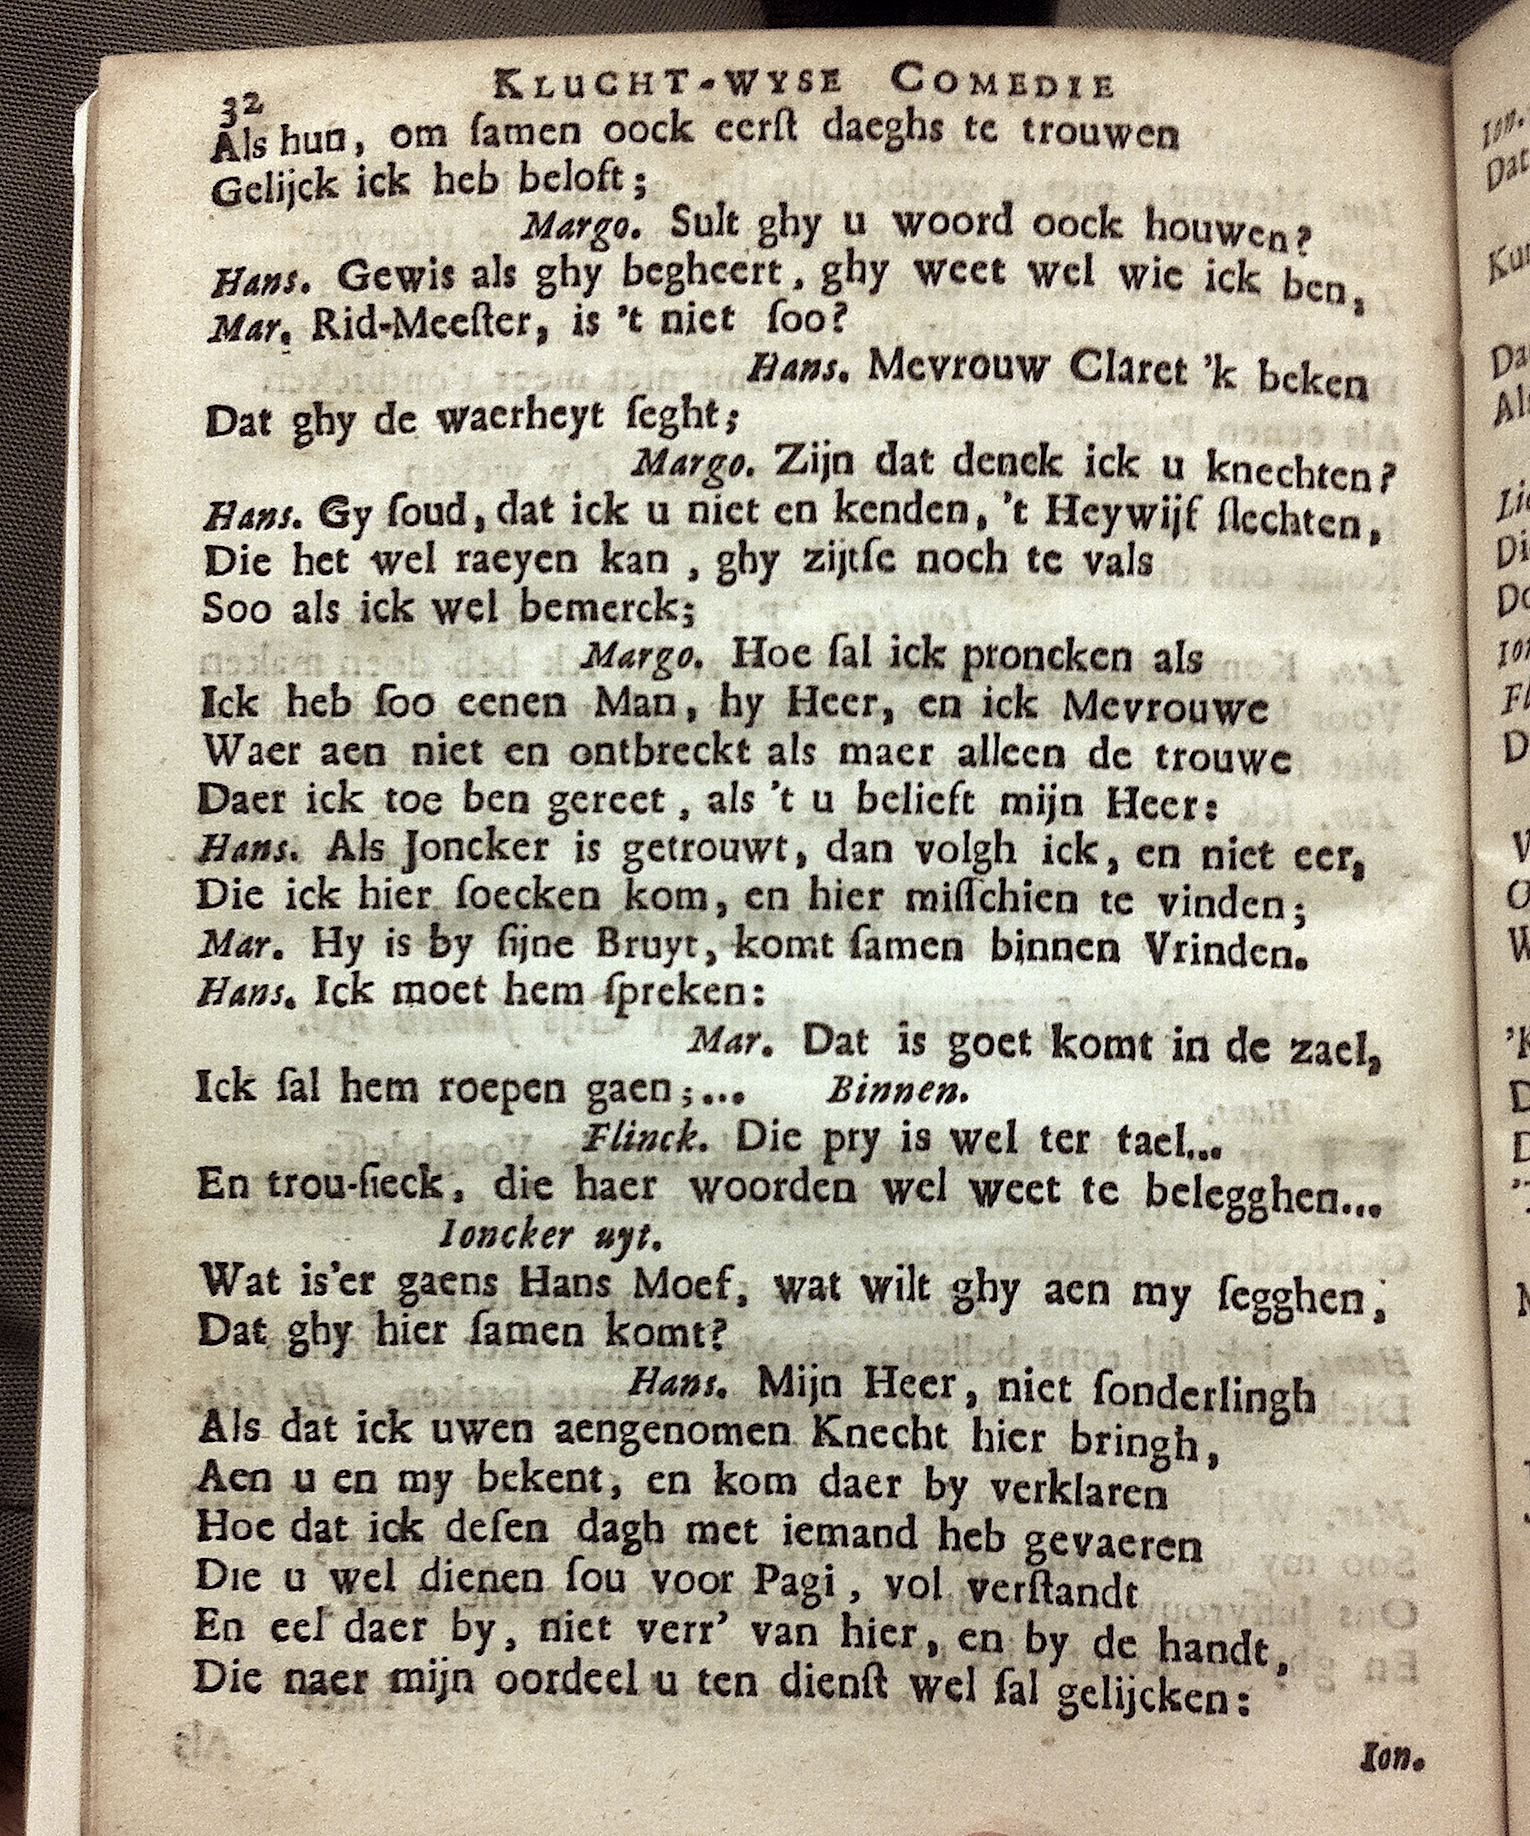 32 KLUCHT-WYSE COMEDIE
Als hun, om ſamen oock eerſt daeghs te trouwen
Gelijck ick heb beloft;
Margo. Sult ghy u woord oock houwen?
Hans. Gewis als ghy begheert, ghy weet wel wie ick ben,
Mar. Rid-Meeſter, is 't niet ſoo?
Hans. Mevrouw Claret 'k beken
Dat ghy de waerheyt ſeght;
Margo. Zijn dat denck ick u knechten?
Hans. Gy ſoud, dat ick u niet en kenden, 't Heywijf ſlechten,
Die het wel raeyen kan, ghy zijtſe noch te vals
Soo als ick wel bemerck;
Margo. Hoe ſal ick proncken als
Ick heb ſoo eenen Man, hy Heer, en ick Mevrouwe
Waer aen niet en ontbreckt als maer alleen de trouwe
Daer ick toe ben gereet, als 't u belieft mijn Heer:
Hans. Als Joncker is getrouwt, dan volgh ick, en niet eer,
Die ick hier ſoecken kom, en hier miſſchien te vinden;
Mar. Hy is by ſijne Bruyt, komt ſamen binnen Vrinden.
Hans. Ick moet hem ſpreken:
Mar. Dat is goet komt in de zael,
Ick ſal hem roepen gaen;... Binnen.
Flinck. Die pry is wel ter tael...
En trou-ſieck, die haer woorden wel weet te belegghen...
Ioncker uyt.
Wat is'er gaens Hans Moef, wat wilt ghy aen my ſegghen,
Dat ghy hier ſamen komt?
Hans. Mijn Heer, niet ſonderlingh
Als dat ick uwen aengenomen Knecht hier bringh,
Aen u en my bekent, en kom daer by verklaren
Hoe dat ick deſen dagh met iemand heb gevaeren
Die u wel dienen ſou voor Pagi, vol verſtandt
En eel daer by, niet verr' van hier, en by de handt,
Die naer mijn oordeel u ten dienſt wel ſal gelijcken:
Ion.